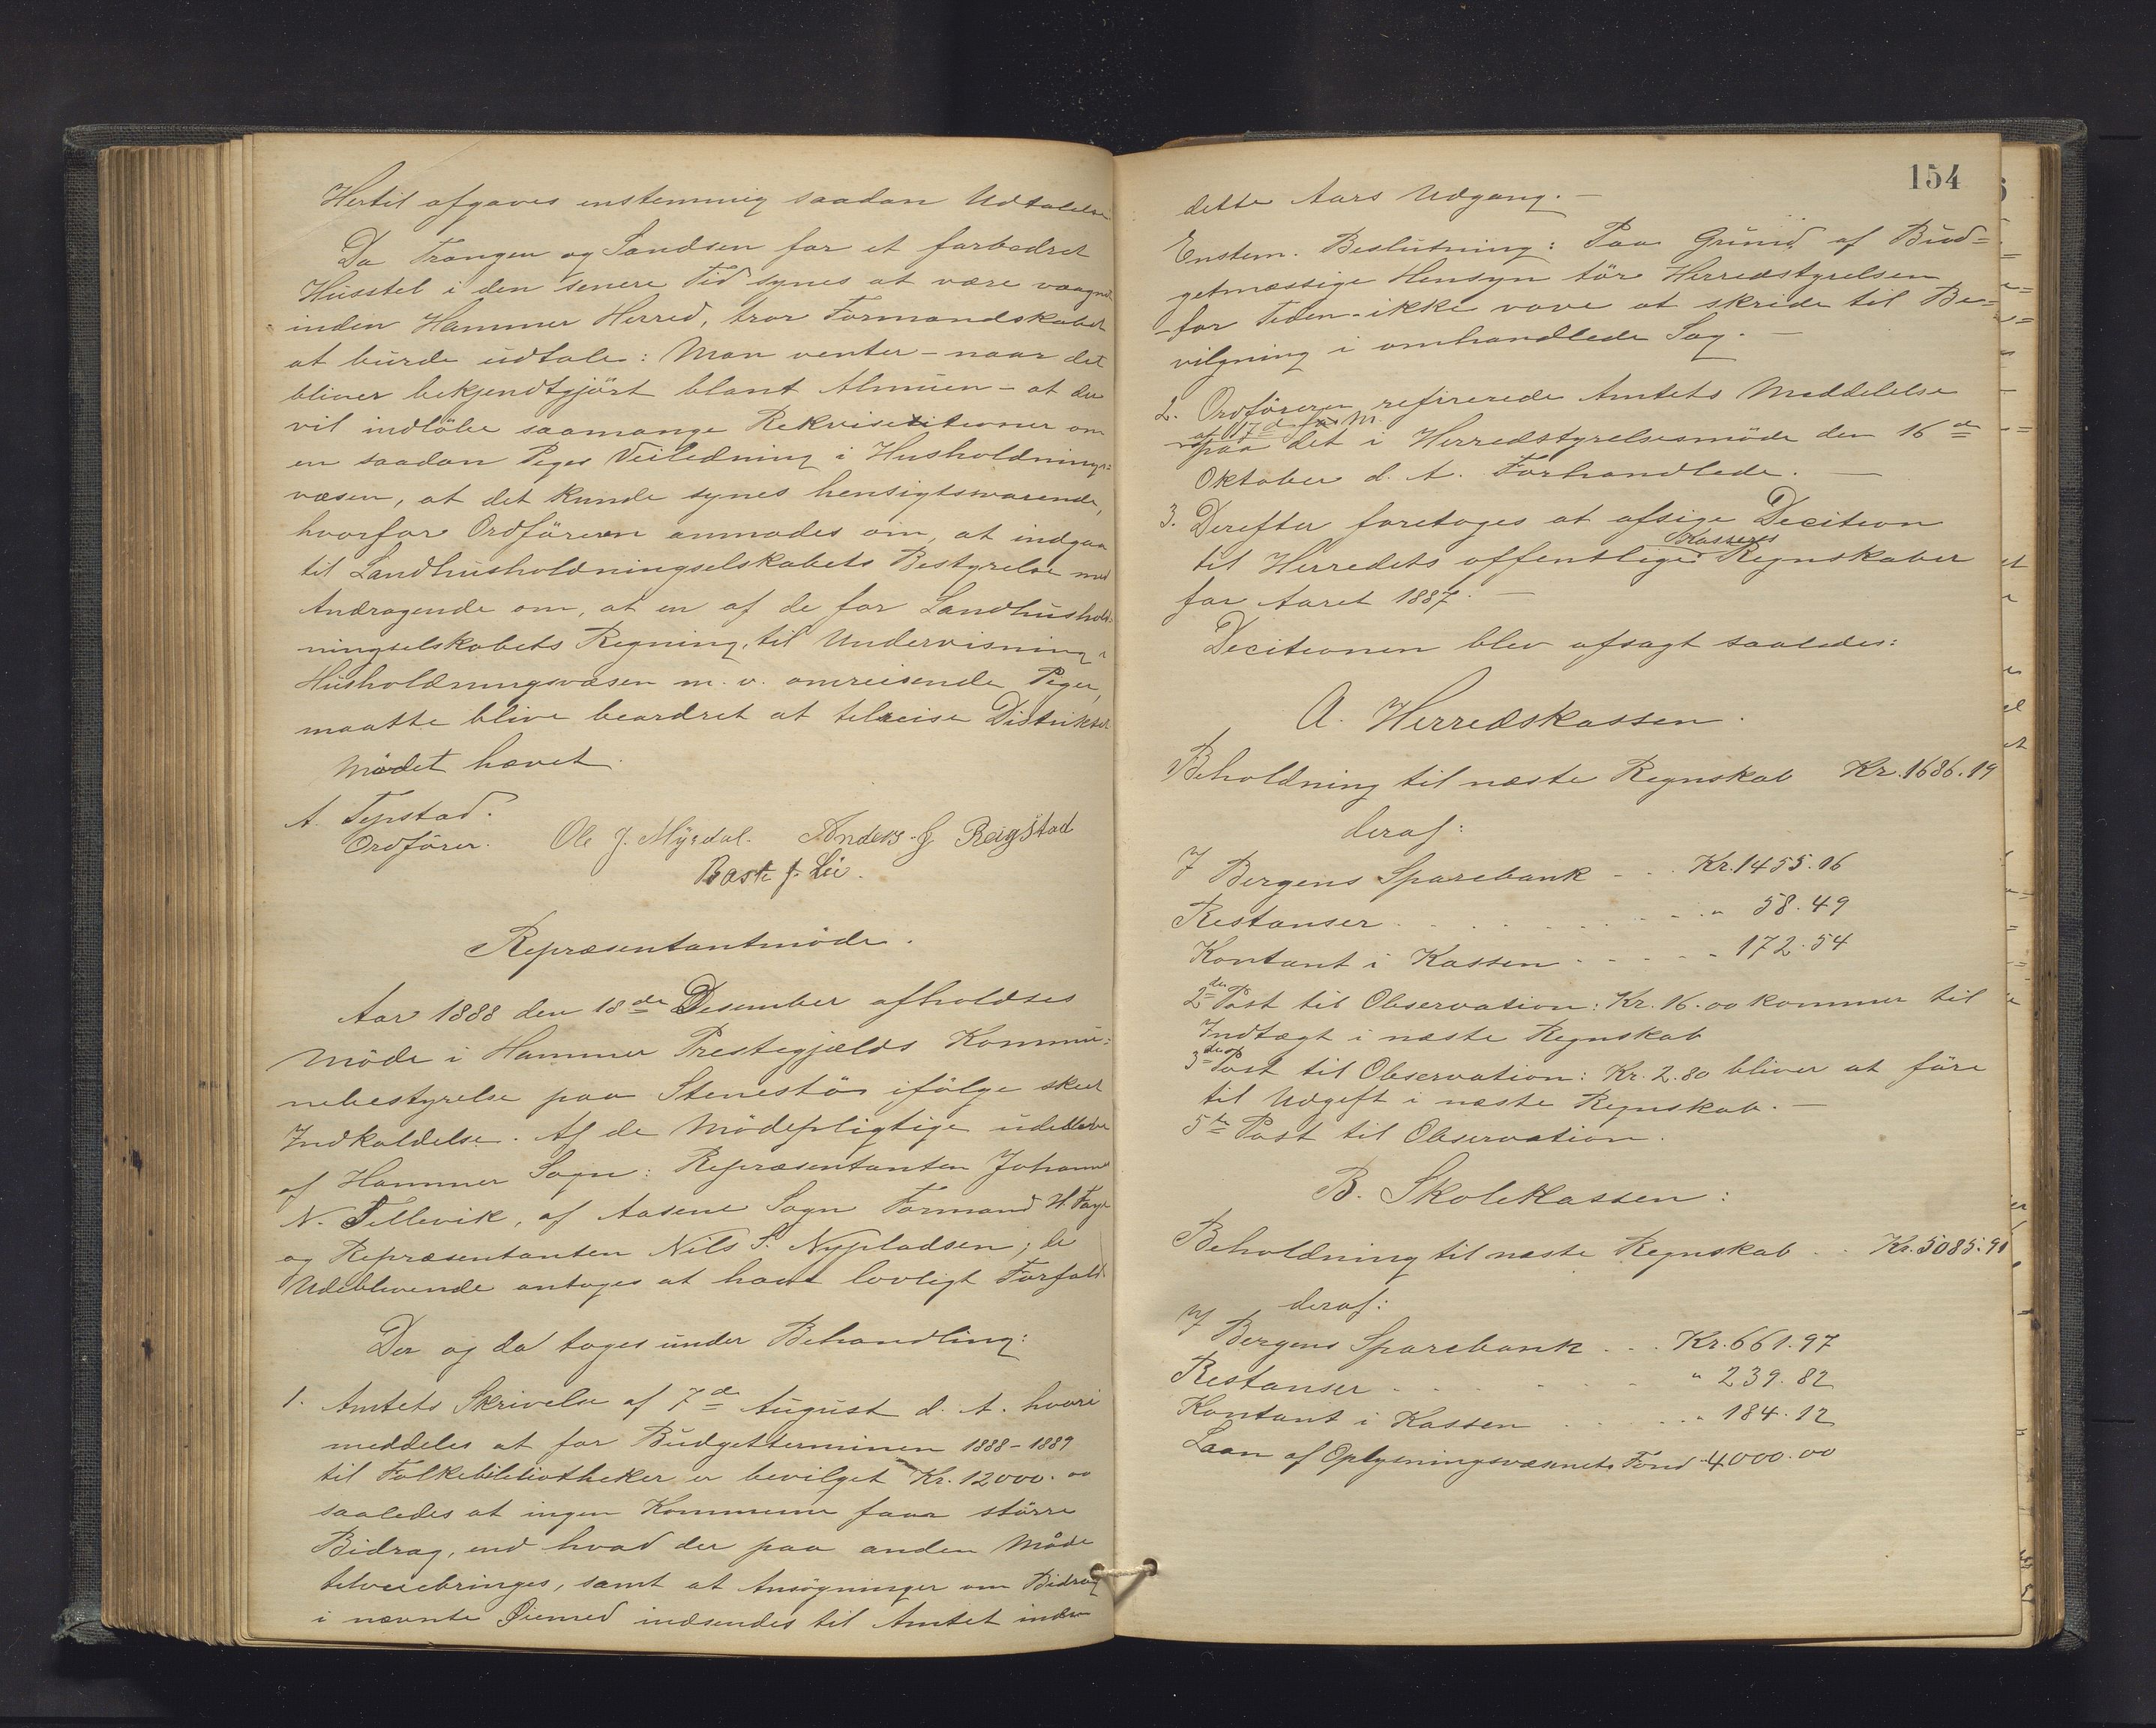 Hertil afgaves enstemmig saadan Udtalelse
Da Trangen og Sandsen for et forbedret
Husstel i den senere Tid synes at være vaagnet
inden Hammer Herred, tror Formandskabet
at burde udtale: Man venter - naar det
bliver bekjendtgjört blant Almuen - at der
vil indlöbe saamange Rekvisitioner om
en saadan Peges Veiledning i Husholdnings=
væsen, at det kunde synes hensigtsvarende,
hvorfor Ordföreren anmodes om, at indgaa
til Landhusholdningselskabets Bestyrelse med
Andragende om, at en af de for Landhushold=
ningselskabets Regning, til Undervisning i
Husholdningsvæsen m. v. omreisende Peger,
maatte blive beordret at tilreise Distriktet
Mödet hævet.
A. Tepstad.
Ordförer. Ole J. Myrdal. Anders J Reigstad
Baste J. Lie.
Repræsentantmöde.
Aar 1888 den 18de Desember afholdtes
Möde i Hammer Prestegjælds Kommu=
nebestyrelse paa Stenestö ifölge skeet
Indkaldelse. Af de Mödepligtige udebleve
af Hammer Sogn: Repræsentanten Johannes
N. Tellevik, af Aasene Sogn Formand H. Faye
og Repræsentanten Nils S. Nypladsen; de
Udeblevende antoges at have lovligt Forfald.
Der og da toges under Behandling:
1. Amtets Skrivelse af 7de August d. A. hvori
meddeles at for Budgetterminen 1888-1889
til Folkebibliotheker er bevilget Kr. 12000.00
saaledes at ingen Kommune faar större
Bidrag, end hvad der paa anden Måde
tilveiebringes, samt at Ansögninger om Bidrag
i nævnte Øiemed indsendes til Amtet inden
154
dette Aars Udgang. -
Enstem. Beslutning: Paa Grund af Bud=
getmæssige Hensyn tör Herredstyrelsen
- for Tiden - ikke vove at skride til Be=
vilgning i omhandlede Sag. -
2. Ordföreren refirerede Amtets Meddelelse
af 17de
paa det i Herredstyrelsesmöde den 16de
Oktober d. A. Forhandlede. -
3. Derefter foretoges at afsige Decition
Kassers
til Herredets offentlige Regnskaber
for Aaret 1887. -
Decitionen blev afsagt saaledes:
A. Herredskassen.
Beholdning til næste Regnskab Kr. 1686.19
deraf:
I Bergens Sparebank - - . Kr. 1455.16
Restanser . . . . . . . . - - " 58.49
Kontant i Kassen - - - - - - 172.54
2den Post til Observation: Kr. 16.00 kommer til
Indtægt i næste Regnskab
3die Post til Observation: Kr. 2.80 bliver at före
til Udgift i næste Regnskab. -
5te Post til Observation.
B. Skolekassen:
Beholdning til næste Regnskab . . Kr. 5085.91
deraf:
I Bergens Sparebank . . . Kr. 661.97
Restanser . . . . . . " 239.82
Kontant i Kassen . . . . . " 184.12
Laan af Oplysningsvæsnets Fond " 4000.00